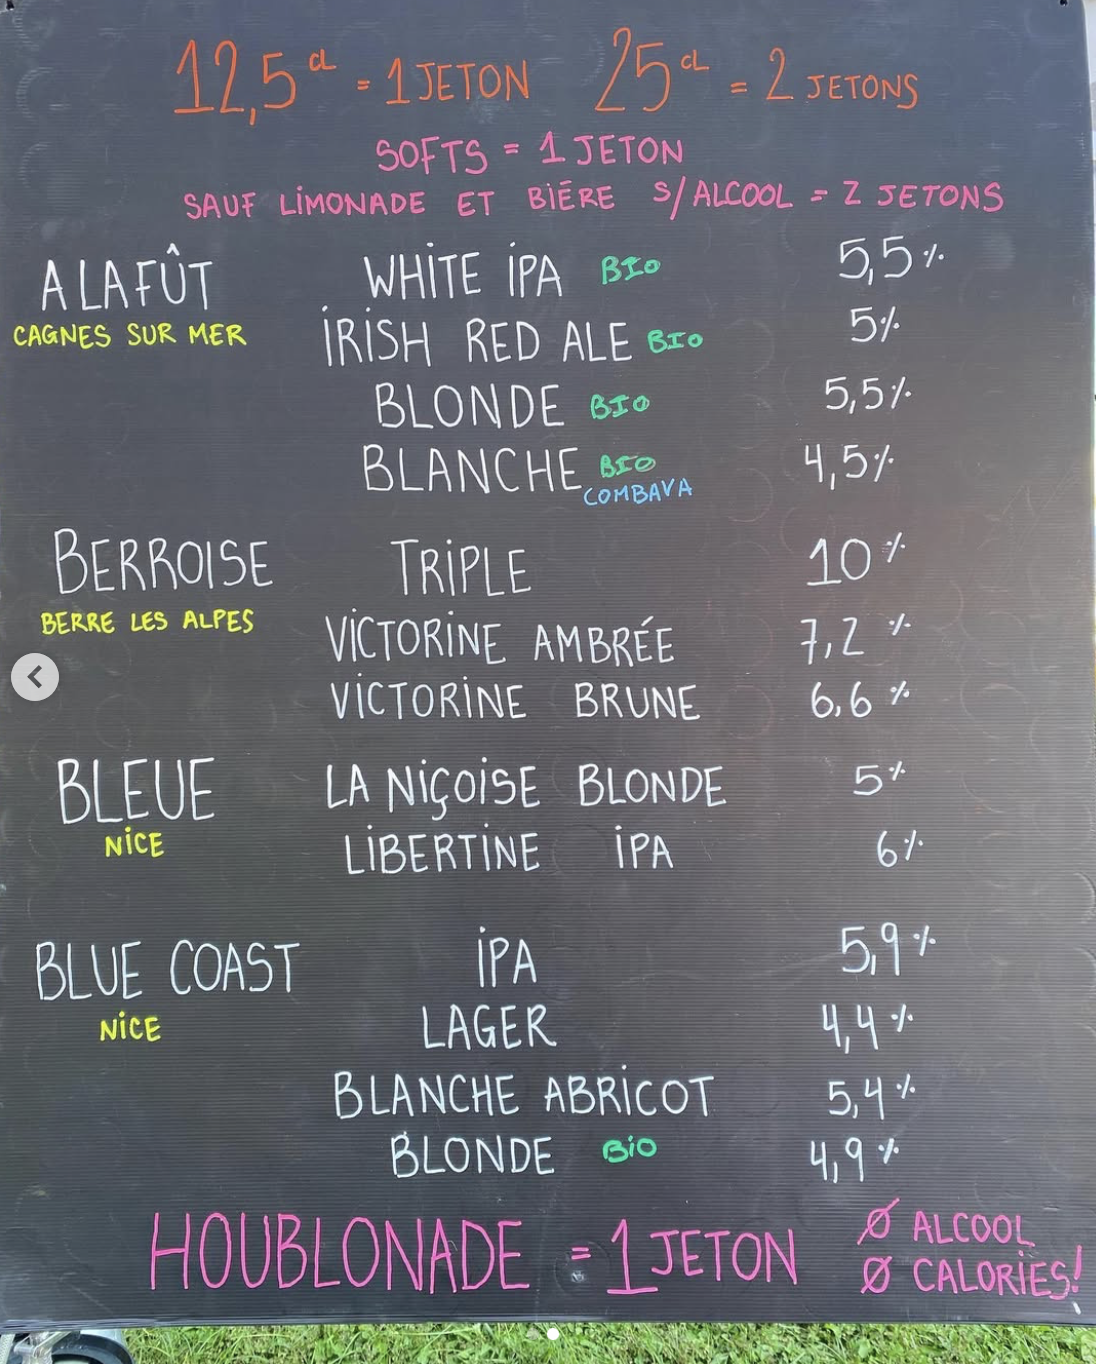 12,5 CL = 1 JETON 25 CL = 2 JETONS
SOFTS = 1 JETON
SAUF LIMONADE ET BIÈRE S/ALCOOL = 2 JETONS
A LA FÛT WHITE IPA BIO 5,5%
CAGNES SUR MER IRISH RED ALE BIO 5%
BLONDE BIO 5,5%
BLANCHE BIO 4,5%
COMBAVA
BERROISE TRIPLE 10%
BERRE LES ALPES VICTORINE AMBRÉE 7,2%
VICTORINE BRUNE 6,6%
BLEUE LA NIÇOISE BLONDE 5%
NICE LIBERTINE IPA 6%
BLUE COAST IPA 5,9%
NICE LAGER 4,4%
BLANCHE ABRICOT 5,4%
BLONDE BIO 4,9%
HOUBLONADE = 1 JETON Ø ALCOOL
Ø CALORIES!